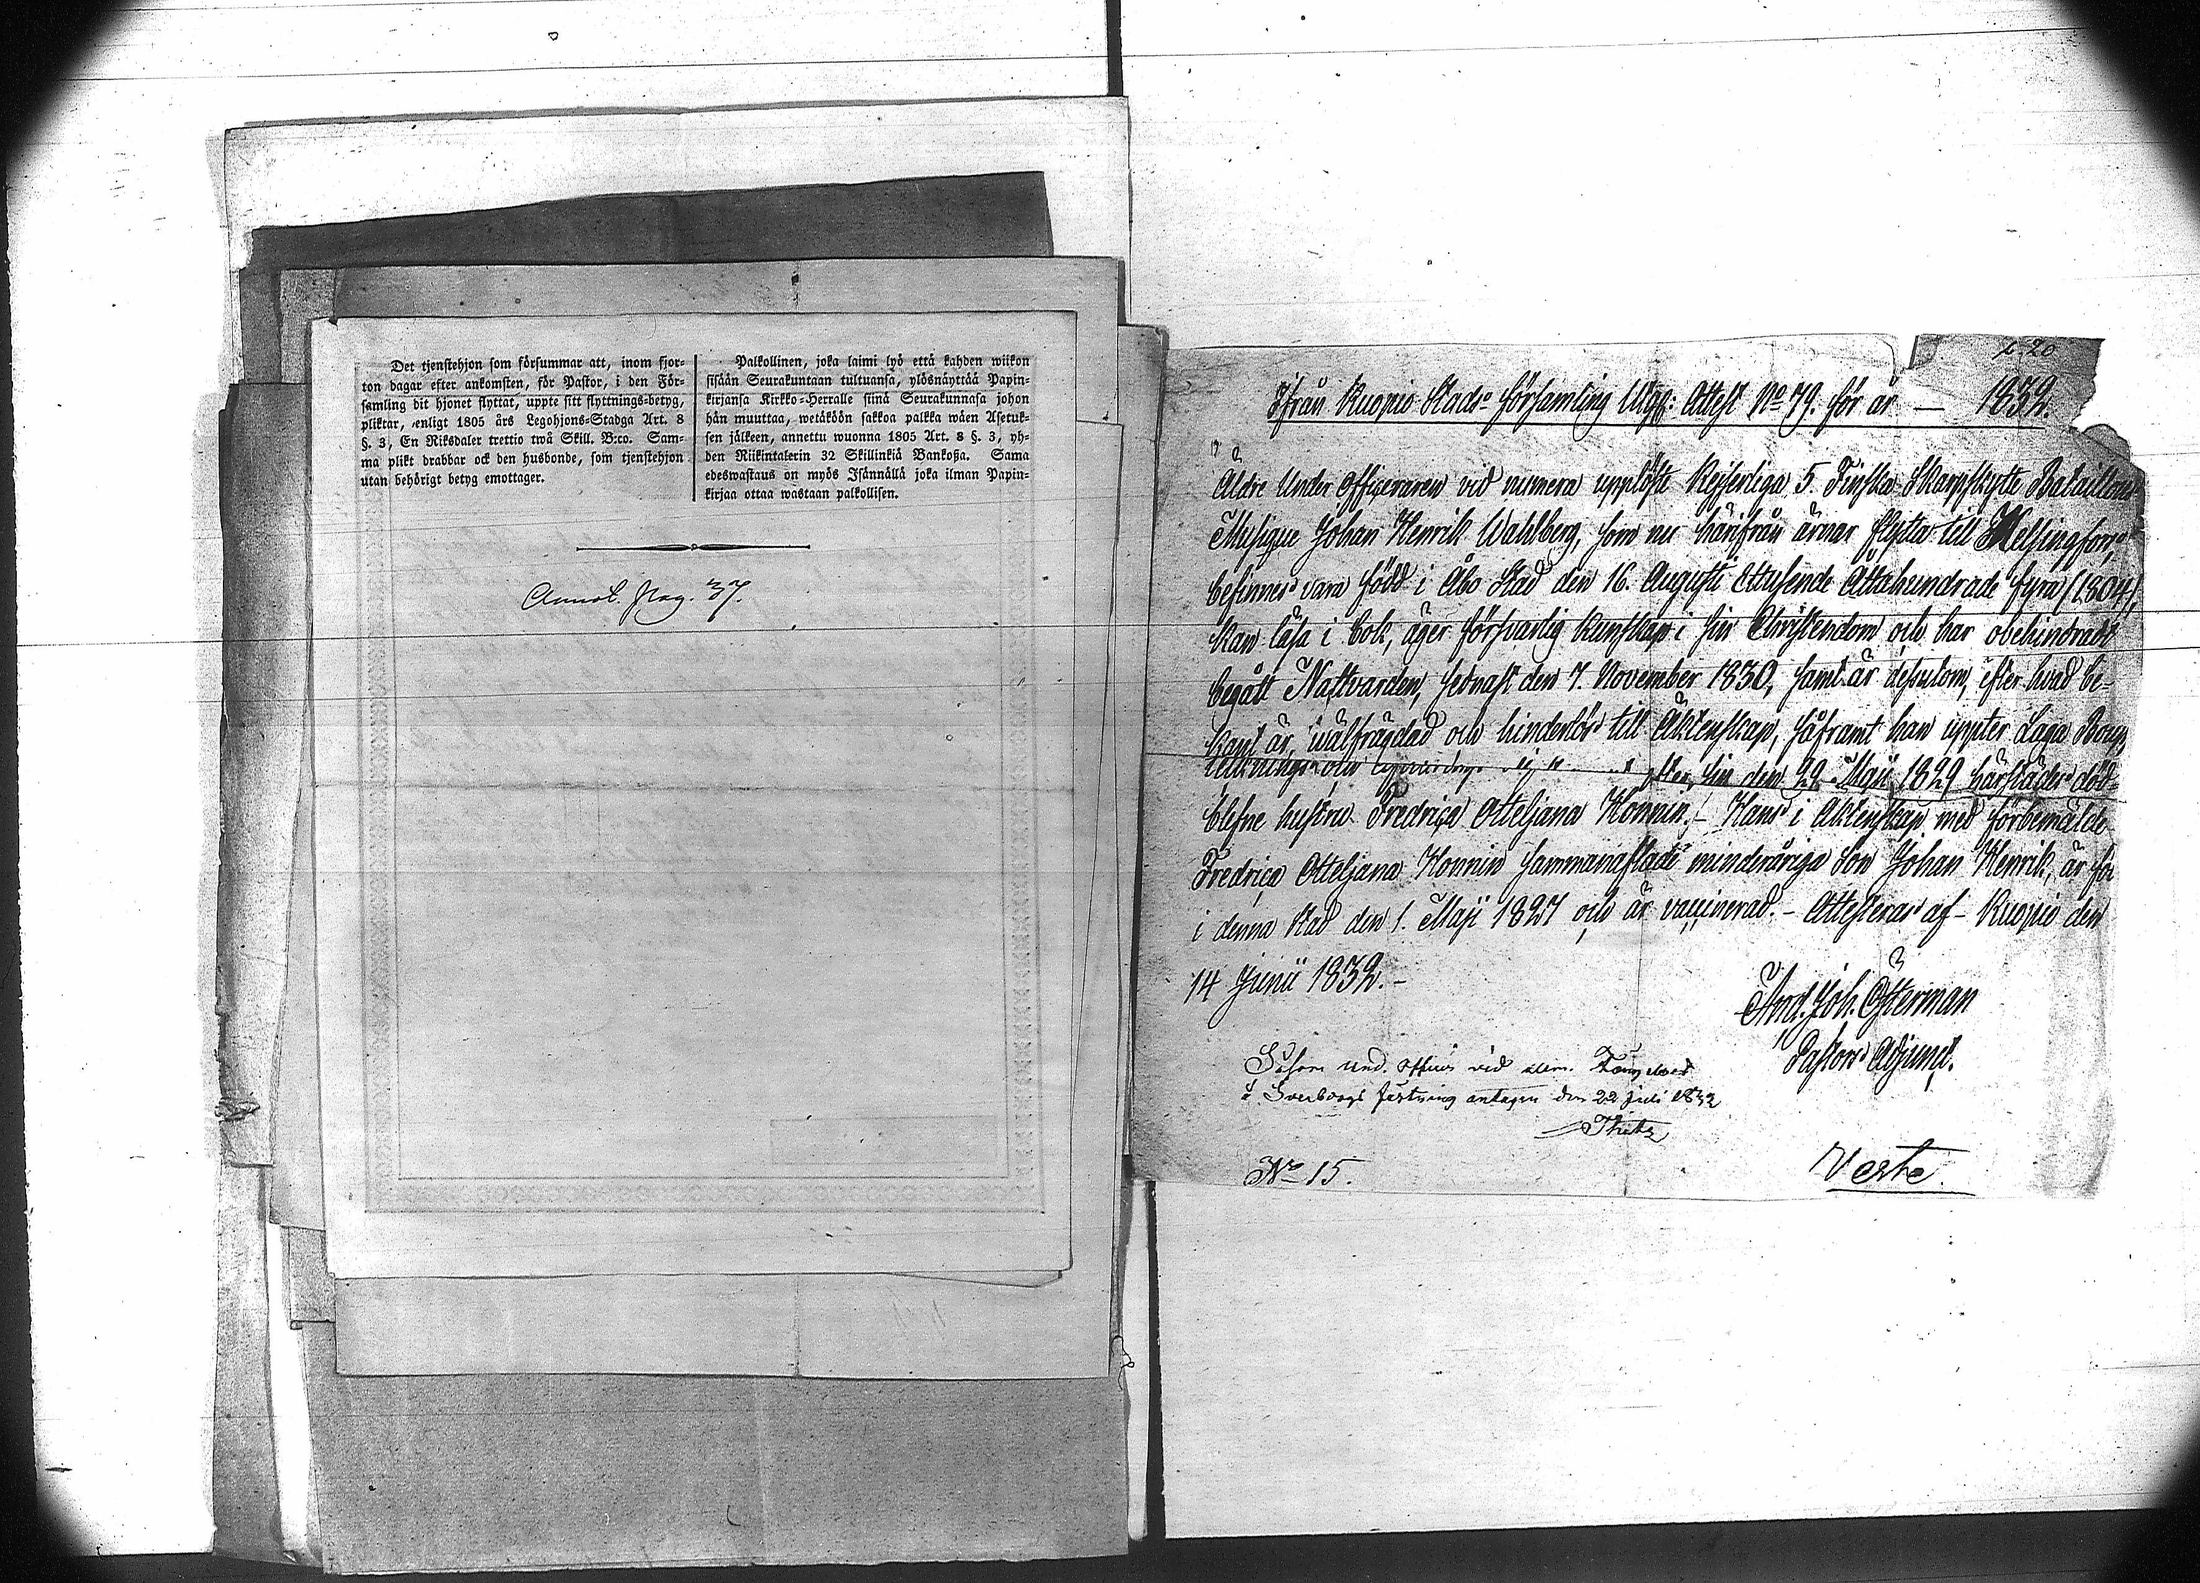 Det tjenstehjon som försummar att, inom fjor-
ton dagar efter ankomsten, för Pastor, i den För-
samling dit hjonet flyttat, uppte sitt flyttnings-betyg,
pliktar, enligt 1805 års Legohjons-Stadga Art. 8
§. 3, En Riksdaler trettio twå Skill. B:co. Sam-
ma plikt drabbar ock den husbonde, som tjenstehjon
utan behörigt betyg emottager.
Palkollinen, joka laimi lyö että kahden wiikon
sisään Seurakuntaan tultuansa, ylösnäyttää Papin-
kirjansa Kirkko-Herralle siinä Seurakunnasa johon
hän muuttaa, wetäköön sakkoa palkka wäen Asetuk-
sen jälkeen, annettu wuonna 1805 Art. 8 §. 3, yh-
den Riikintalerin 32 Skillinkiä Bankoßa. Sama
edeswastaus on myös Isännällä joka ilman Papin-
kirjaa ottaa wastaan palkollisen.
Annot. Pag. 37.
20
Ifrån Kuopio Stads Församling Utgf: Attest No 79. för år — 1832.
Äldre Under Officeraren vid numera upplöste Kejserliga 5. Finska Skarpskytte Bataillons
Musique Johan Henrik Wahlberg, som nu härifrån ärnar flytta till Helsingfors,
befinnes vara född i Åbo Stad den 16. Augusti Ettusende Åttahundrade fyra (1804),
kan läsa i bok, äger försvarlig kunskap i sin Christendom och har obehindradt
begått Nattvarden, sednast den 7. November 1830, samt är dessutom, efter hvad be-
kant är, wälfrägdad och hinderlös till Äktenskap, såframt han uppter Laga Boupp
tecknings och efter sin den 22 Maji 1829 härstädes död-
blefne hustru Fredrica Otteljana Honnin. – Hans i Äktenskap med förbemälde
Fredrica Otteljana Honnin sammanaflade minderåriga Son Johan Henrik, är fö
i denna Stad den 1. Maji 1827 och är vaccinerad. – Attesteras af – Kuopio den
14 Junii 1832. –
And. Joh. Österman
Pastors Adjunct.
Såsom Und. Officer vid
å Sveaborgs fästning antagen den 22 Juli 1832
No 15.
Verte.